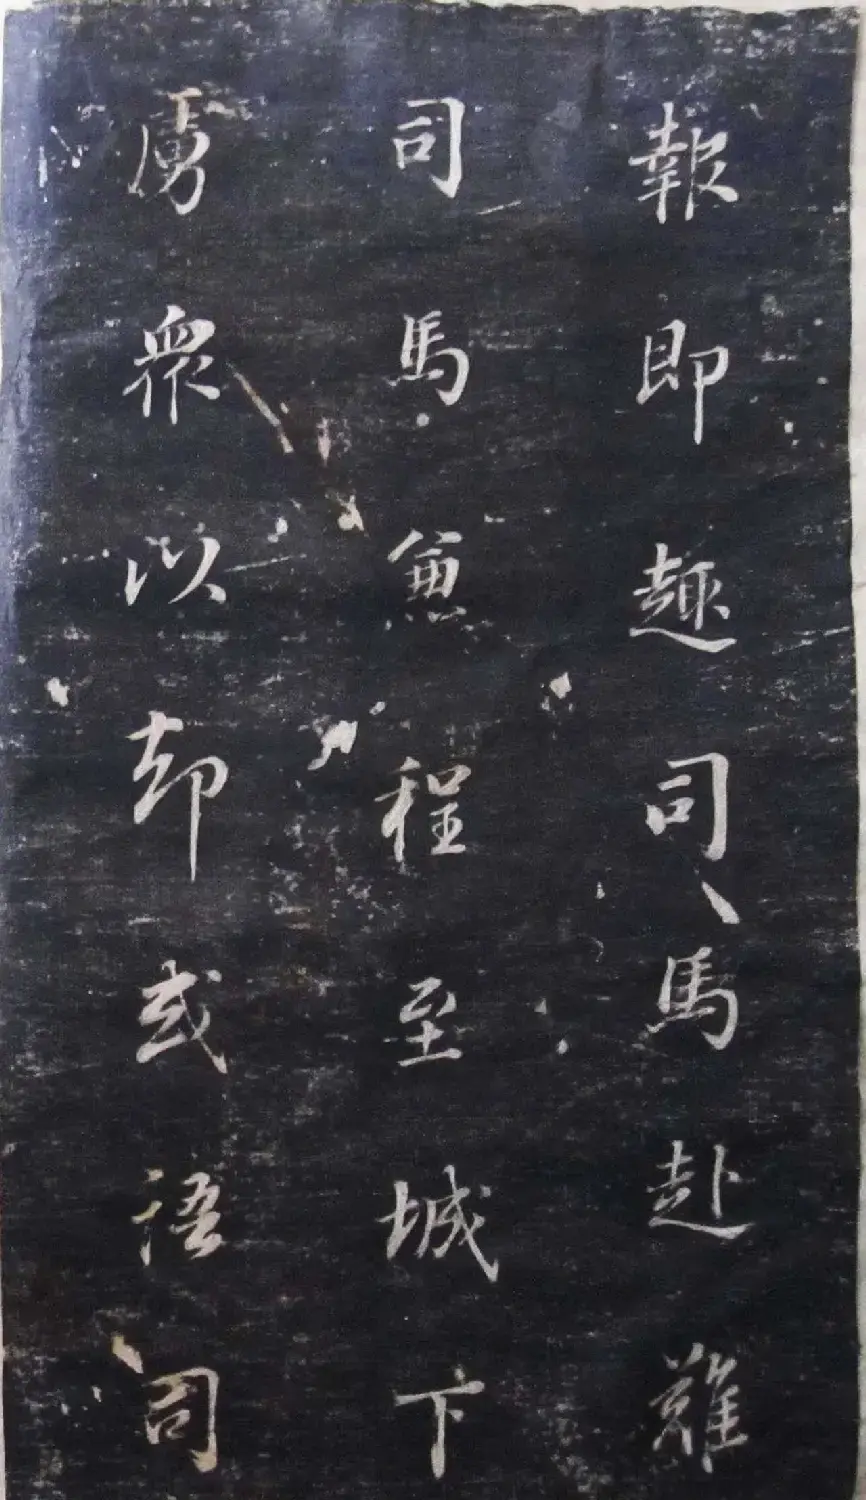 報即趣司馬赴難
司馬兼程至城下
虜衆以却或語司